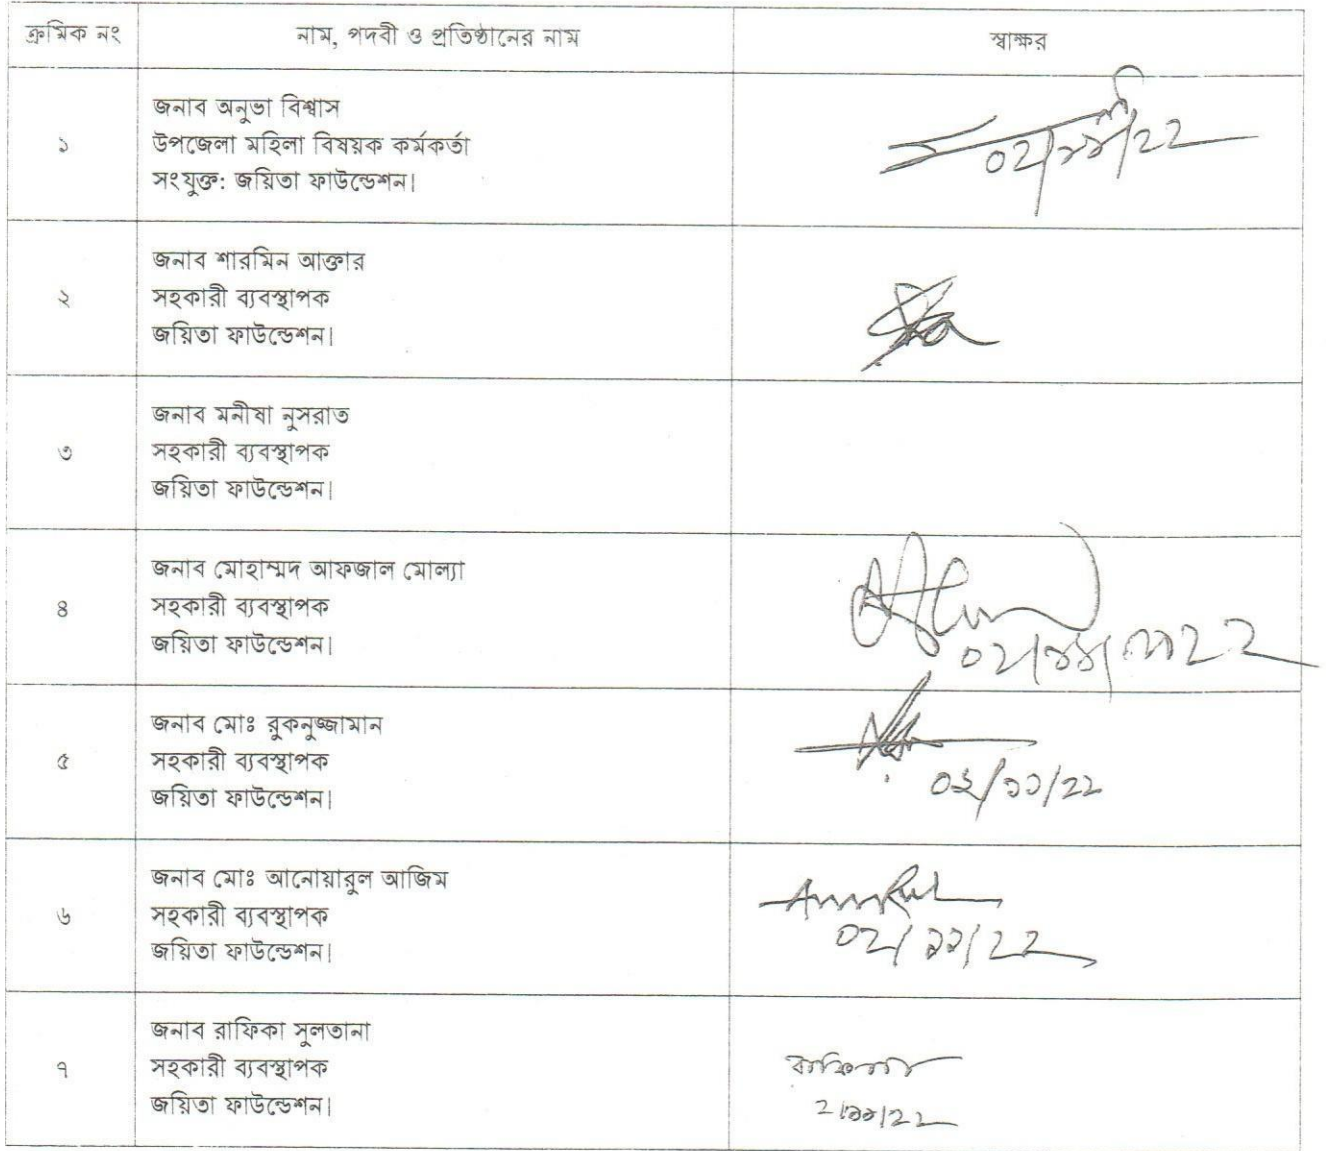 ক্রমিক নং নাম, পদবী ও প্রতিষ্ঠানের নাম স্বাক্ষর
জনাব অনুভা বিশ্বাস
১ উপজেলা মহিলা বিষয়ক কর্মকর্তা
সংযুক্ত: জয়িতা ফাউন্ডেশন।
০২/১১/২২
জনাব শারমিন আক্তার
২ সহকারী ব্যবস্থাপক
জয়িতা ফাউন্ডেশন।
জনাব মনীষা নুসরাত
৩ সহকারী ব্যবস্থাপক
জয়িতা ফাউন্ডেশন।
জনাব মোহাম্মদ আফজাল মোল্যা
৪ সহকারী ব্যবস্থাপক
জয়িতা ফাউন্ডেশন।
জনাব মোঃ রুকনুজ্জামান
৫ সহকারী ব্যবস্থাপক
জয়িতা ফাউন্ডেশন।
০২/১১/২২
জনাব মোঃ আনোয়ারুল আজিম
৬ সহকারী ব্যবস্থাপক
জয়িতা ফাউন্ডেশন।
০২/১১/২২
জনাব রাফিকা সুলতানা
৭ সহকারী ব্যবস্থাপক
জয়িতা ফাউন্ডেশন।
২/১১/২২